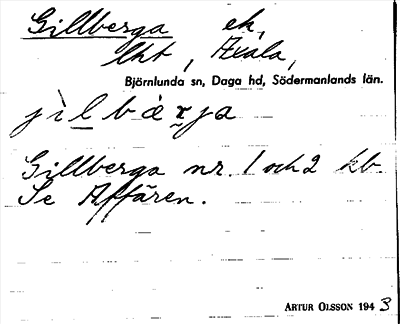 Gillberga ek,
lht, Axala,
Björnlunda sn, Daga hd, Södermanlands län.
Gillberga nr. 1 och 2 kb.
Se Affären.
ARTUR OLSSON 1943